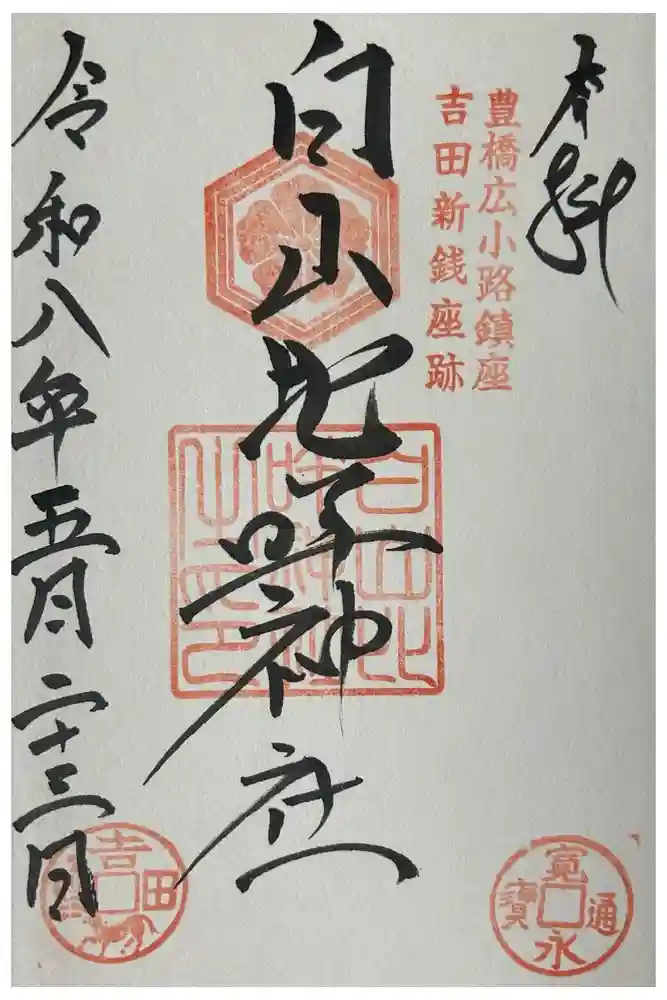 奉拝
豊橋広小路鎮座
吉田新銭座跡
白山比咩神社
白山比
咩神社
之印
令和八年五月二十三日
寛永通寳
吉田